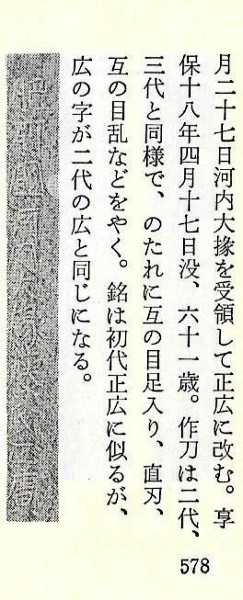 月二十七日河内大掾を受領して正広に改む。享
保十八年四月十七日没、六十一歳。作刀は二代、
三代と同様で、のたれに互の目足入り、直刃、
互の目乱などをやく。銘は初代正広に似るが、
広の字が二代の広と同じになる。
578